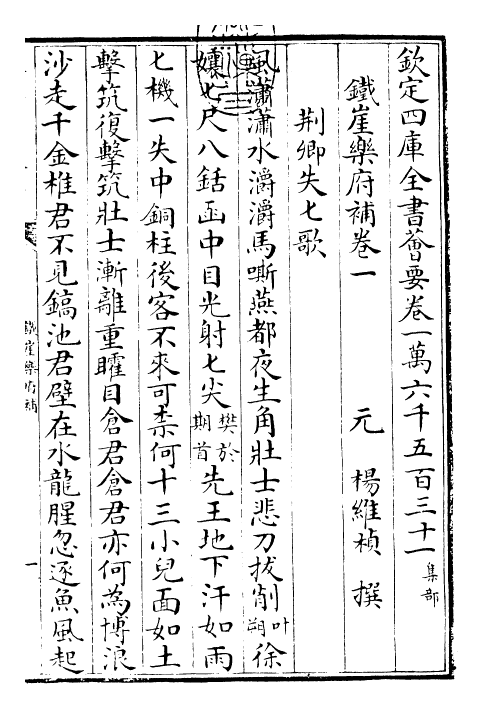 欽定四庫全書薈要卷一萬六千五百三十一 集部
鐵崖樂府補卷一 元 楊維楨 撰
荆卿失匕歌
風瀟瀟水潺潺馬嘶燕都夜生角壯士悲刀拔削 叶朔 徐
孃匕尺八銛函中目光射匕尖 樊於期首 先王地下汗如雨
匕機一失中銅柱後客不來可柰何十三小兒面如土
擊筑復擊筑壯士漸離重矐目倉君倉君亦何為博浪
沙走千金椎君不見鎬池君璧在水龍腥忽逐魚風起
鐵崖樂府補
一